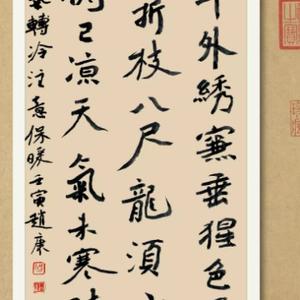 外綉簾垂猩色
折枝八尺龍須
已凉天氣未寒時
轉冷注意保暖壬寅趙康